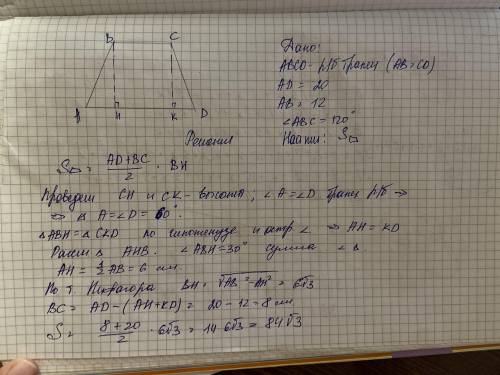 B C
A H K D
Дано:
ABCD - р/б трапец (AB=CD)
AD = 20
AB = 12
∠ABC = 120°
Найти: S
Решения
S = AD+BC/2 · BH
Проведем CH и CK - высота; ∠A=∠D трапец р/б ⇒
⇒ ∠A=∠D= 60°.
△ABH=△CKD по гипотенузе и остр ∠ ⇒ AH = KD
△ AHB. ∠ABH=30° сумма ∠ △
AH = 1/2 AB = 6 см
По т. Пифагора BH= √AB²-AH² = 6√3
BC = AD-(AH+KD) = 20-12=8 см
S = 8+20/2 · 6√3 = 14·6√3 = 84√3